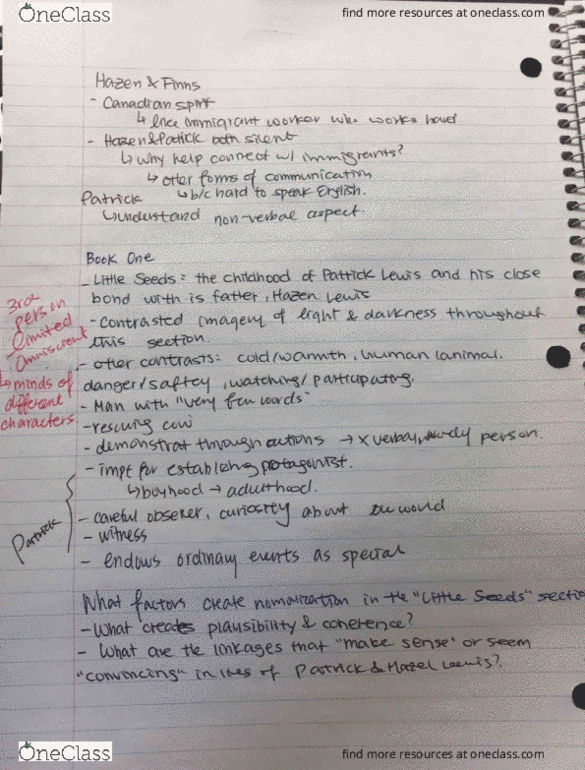 OneClass
find more resources at oneclass.com
Hazen & Finns
- Canadian spirit
↳ Once immigrant worker who works hard
- Hazen & Patrick both silent
↳ why help connect w/ immigrants?
↳ other forms of communication
Patrick ↳ b/c hard to speak English.
↳ understand non-verbal aspect.
Book One
- Little Seeds: the childhood of Patrick Lewis and his close
bond with is father, Hazen Lewis
- contrasted imagery of light & darkness throughout
this section.
- other contrasts: cold/warmth, human/animal.
danger/saftey, watching/participating.
- Man with "very few words"
- rescuing cow
- demonstrat through actions → x verbal, person.
- impt for establishing protagonist.
↳ boyhood → adulthood.
- careful observer, curiosity about the world
- witness
- endows ordinary events as special
3rd
person
limited
Omniscient
↳ minds of
different
characters
Patrick
What factors create normalization in the "Little Seeds" sectio
- What creates plausibility & coherence?
- What are the linkages that "make sense" or seem
"convincing" in lives of Patrick & Hazel Leewis?
OneClass
find more resources at oneclass.com